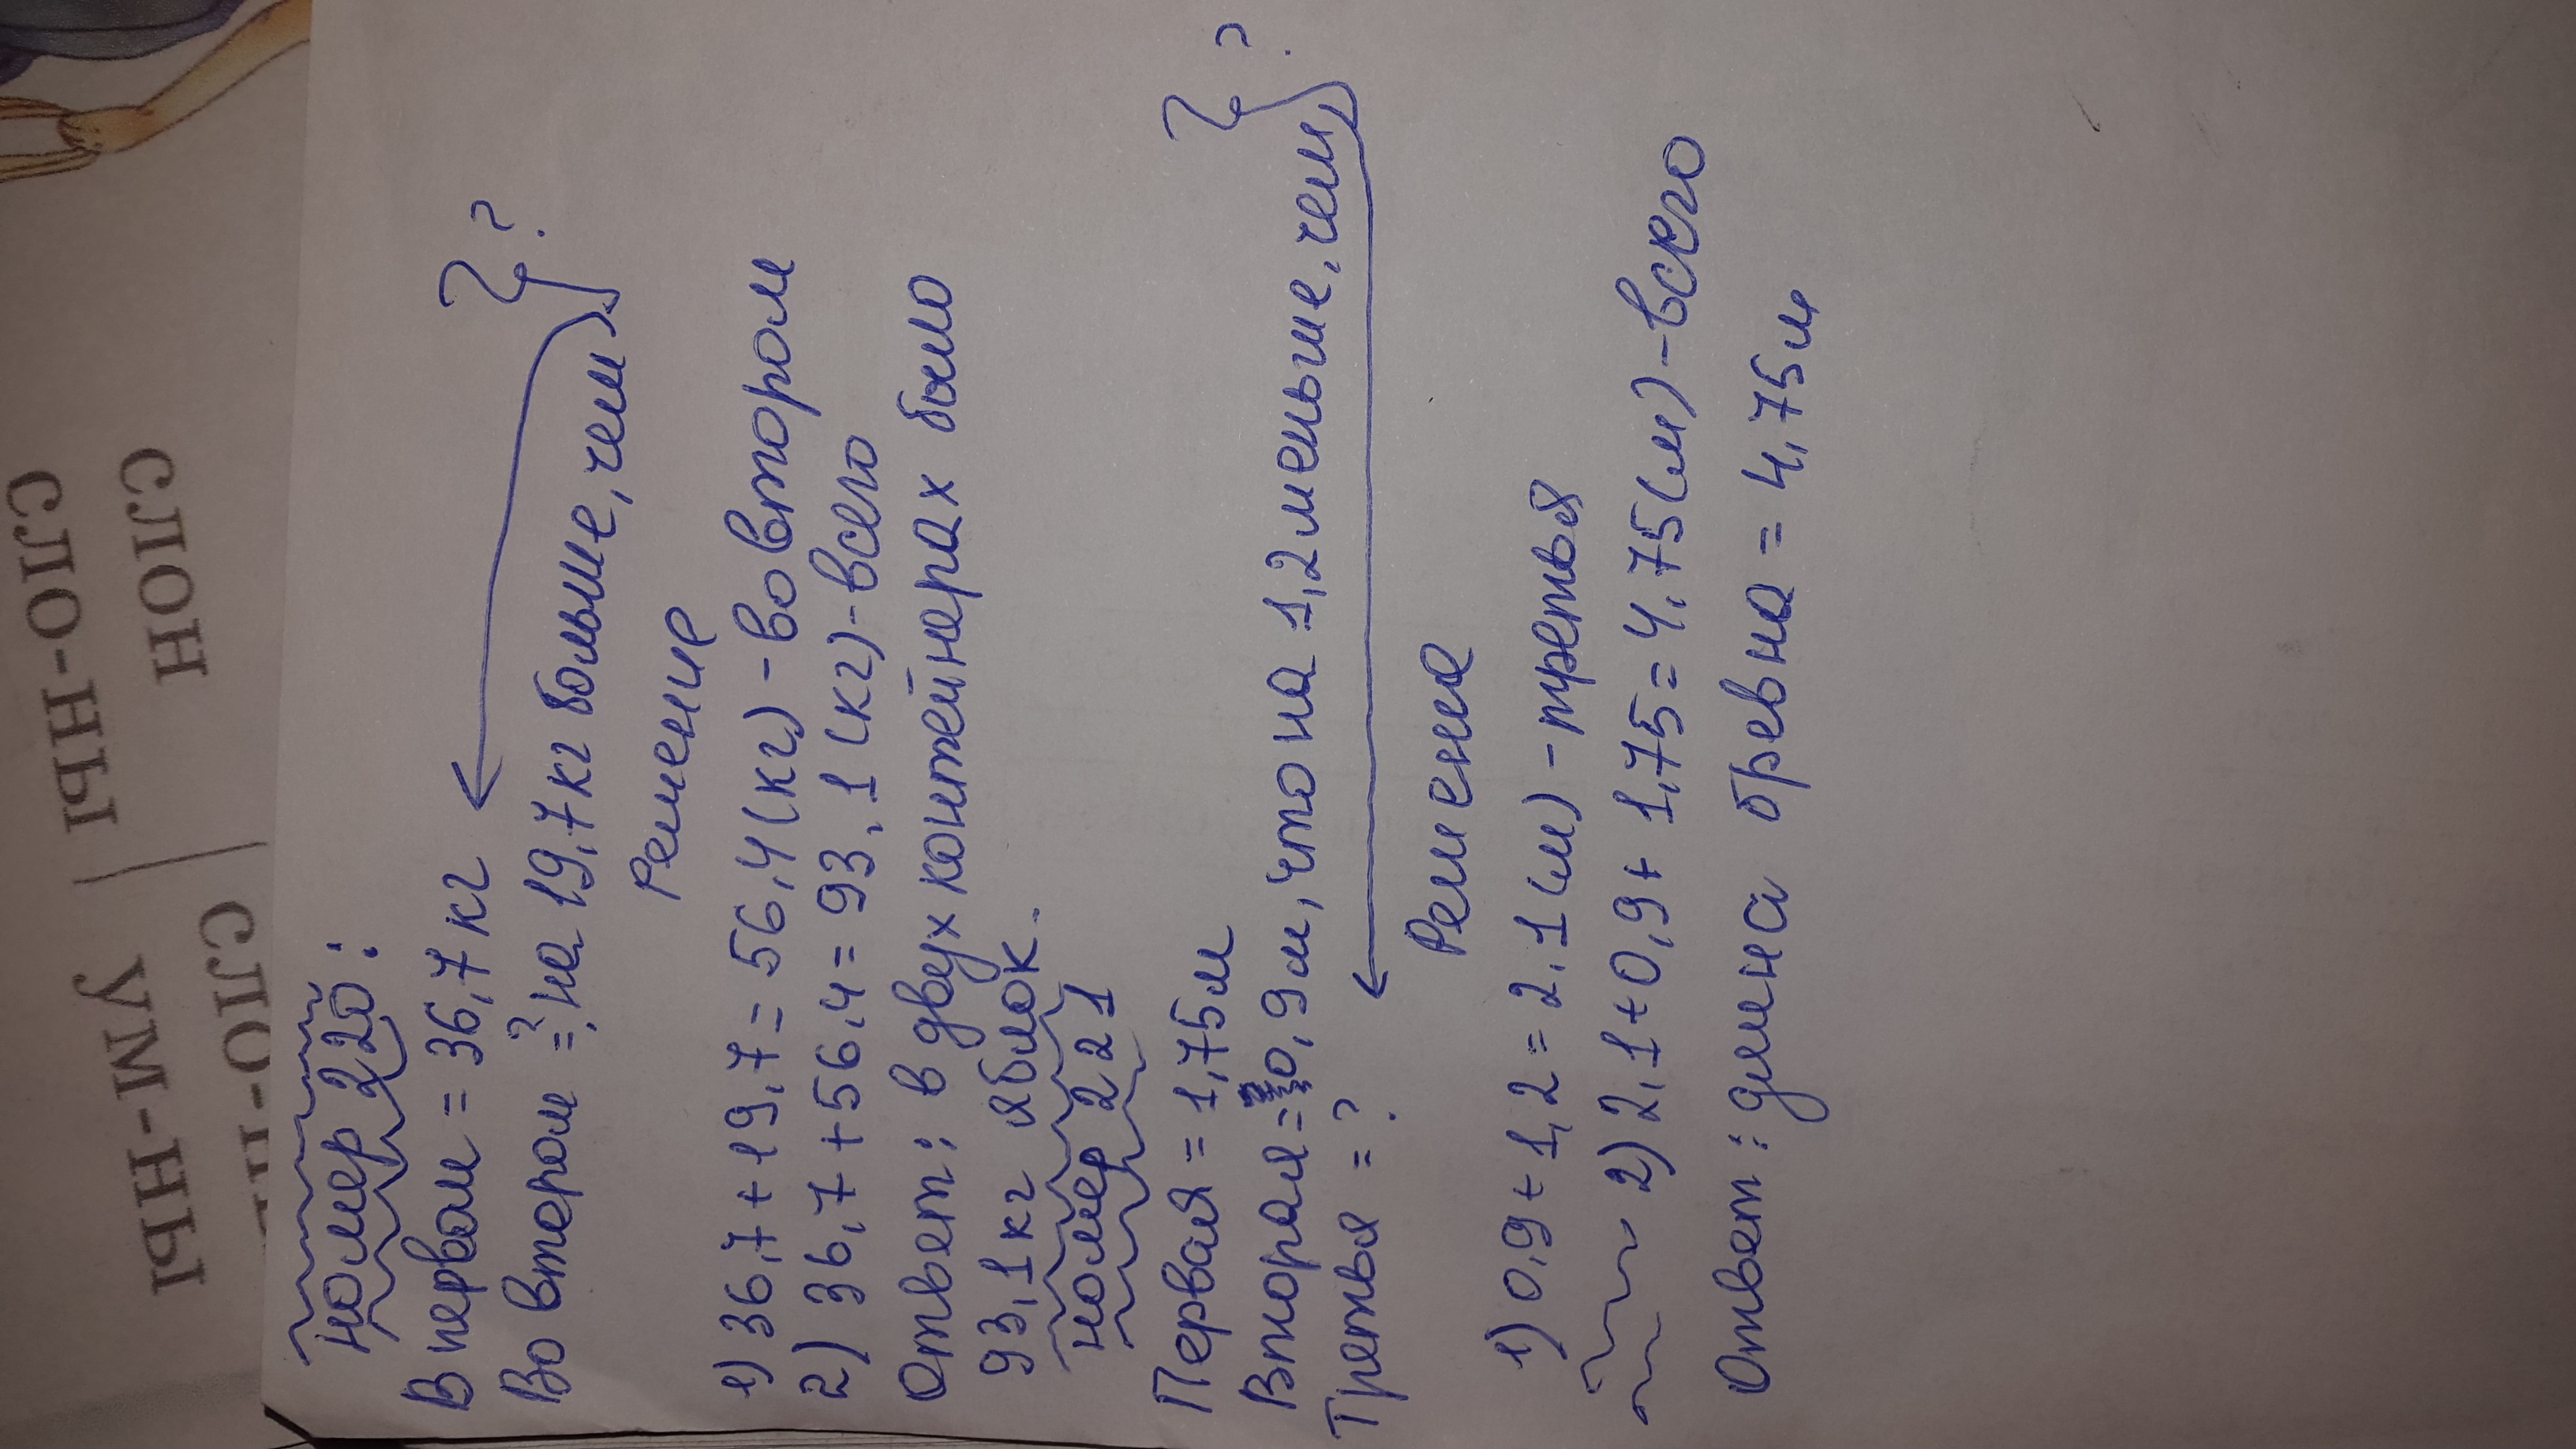 СЛО-НЫ
СЛОН
УМ-НЫ
Номер 220:
В первом = 36,7 кг
Во втором = ?, на 19,7 кг больше, чем
?
Решение
1) 36,7 + 19,7 = 56,4 (кг) - во втором
2) 36,7 + 56,4 = 93,1 (кг) - всего
Ответ: в двух контейнерах было
93,1 кг яблок.
Номер 221
Первая = 1,75 м
Вторая = 0,9 м, что на 1,2 меньше, чем
?
Третья = ?
Решена
1) 0,9 + 1,2 = 2,1 (м) - третья
2) 2,1 + 0,9 + 1,75 = 4,75 (м) - всего
Ответ: длина бревна = 4,75 м